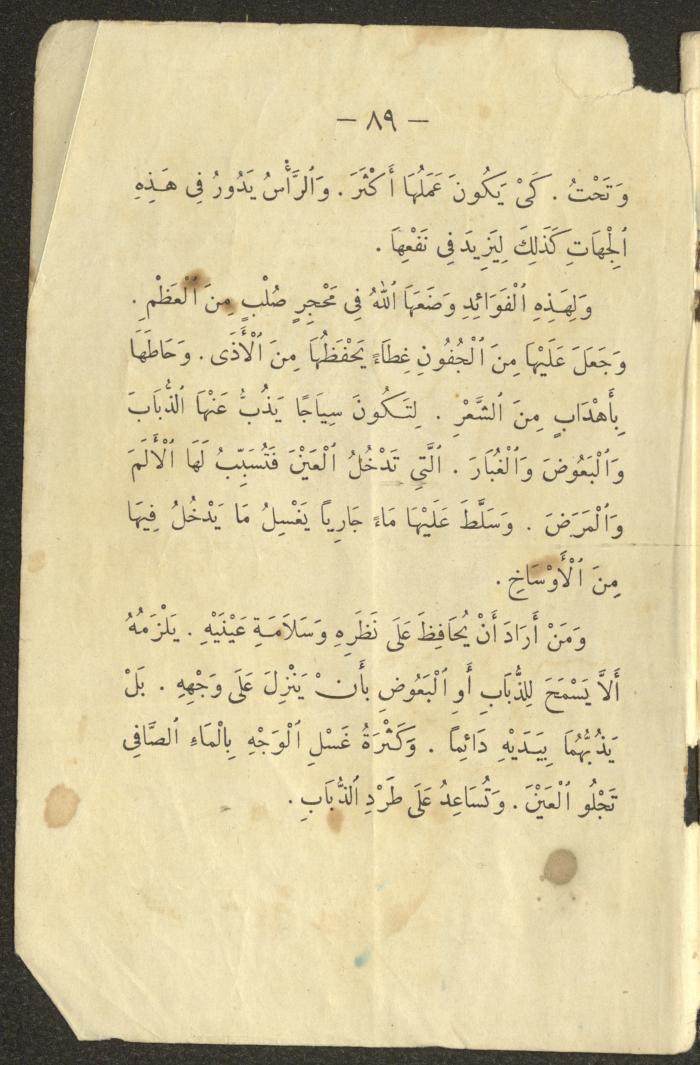 — ٨٩ —
وَتَحْتُ . كَيْ يَكُونَ عَمَلُهَا أَكْثَرَ . وَٱلرَّأْسُ يَدُورُ فِى هَـذِهِ
ٱلْجِهَاتِ كَذَلِكَ لِيَزِيدَ فِى نَفْعِهَا .
وَلِهَـذِهِ ٱلْفَوَائِدِ وَضَعَهَا ٱللهُ فِى مَحْجِرٍ صُلْبٍ مِنَ ٱلْعَظْمِ .
وَجَعَلَ عَلَيْهَا مِنَ ٱلْجُفُونِ غِطَاءً يَحْفَظُهَا مِنَ ٱلْأَذَى . وَحَاطَهَا
بِأَهْدَابٍ مِنَ ٱلشَّعْرِ . لِتَـكُونَ سِيَاجًا يَذُبُّ عَنْهَا ٱلذُّبَابَ
وَٱلْبَعُوضَ وَٱلْغُبَارَ . ٱلَّتِي تَدْخُلُ ٱلْعَيْنَ فَتُسَبِّبُ لَهَا ٱلْأَلَمَ
وَٱلْمَرَضَ . وَسَلَّطَ عَلَيْهَا مَاءً جَارِياً يَغْسِلُ مَا يَدْخُلُ فِيهَا
مِنَ ٱلْأَوْسَاخِ .
وَمَنْ أَرَادَ أَنْ يُحَافِظَ عَلَى نَظَرِهِ وَسَلَامَـةِ عَيْنَيْهِ . يَلْزَمُهُ
أَلاَّ يَسْمَحَ لِلذُّبَابِ أَوِ ٱلْبَعُوضِ بِأَنْ يَنْزِلَ عَلَى وَجْهِهِ . بَلْ
يَذُبُّهُمَا بِيَـدَيْهِ دَائِماً . وَكَثْرَةُ غَسْلِ ٱلْوَجْهِ بِالْمَاءِ ٱلصَّافِى
تَجْلُو ٱلْعَيْنَ . وَتُسَاعِدُ عَلَى طَرْدِ ٱلذُّبَابِ .